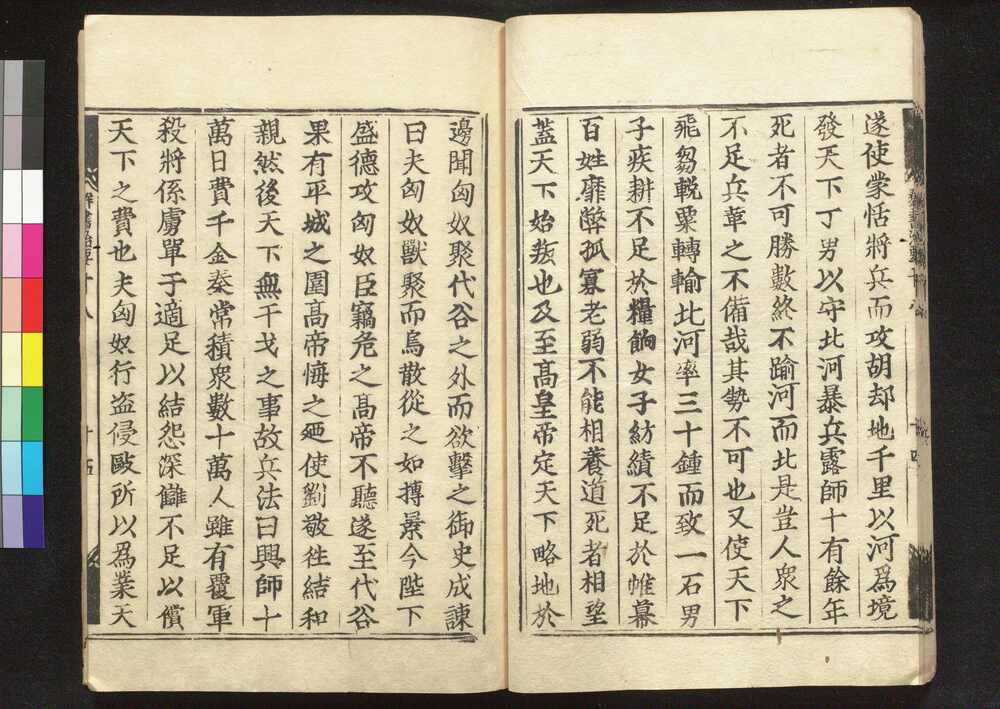 遂使蒙恬將兵而攻胡却地千里以河爲境
發天下丁男以守北河暴兵露師十有餘年
死者不可勝數終不踰河而北是豈人衆之
不足兵革之不備哉其勢不可也又使天下
飛芻輓粟轉輸北河率三十鍾而致一石男
子疾耕不足於糧餉女子紡績不足於帷幕
百姓靡弊孤寡老弱不能相養道死者相望
蓋天下始叛也及至髙皇帝定天下略地於
邊聞匈奴聚代谷之外而欲擊之御史成諫
曰夫匈奴獸聚而鳥散從之如搏景今陛下
盛德攻匈奴臣竊危之髙帝不聽遂至代谷
果有平城之圍髙帝悔之廼使劉敬徃結和
親然後天下無干戈之事故兵法曰興師十
萬日費千金秦常積衆數十萬人雖有覆軍
殺將係虜單于適足以結怨深讎不足以償
天下之費也夫匈奴行盗侵敺所以爲業天
群書治要十八
十五